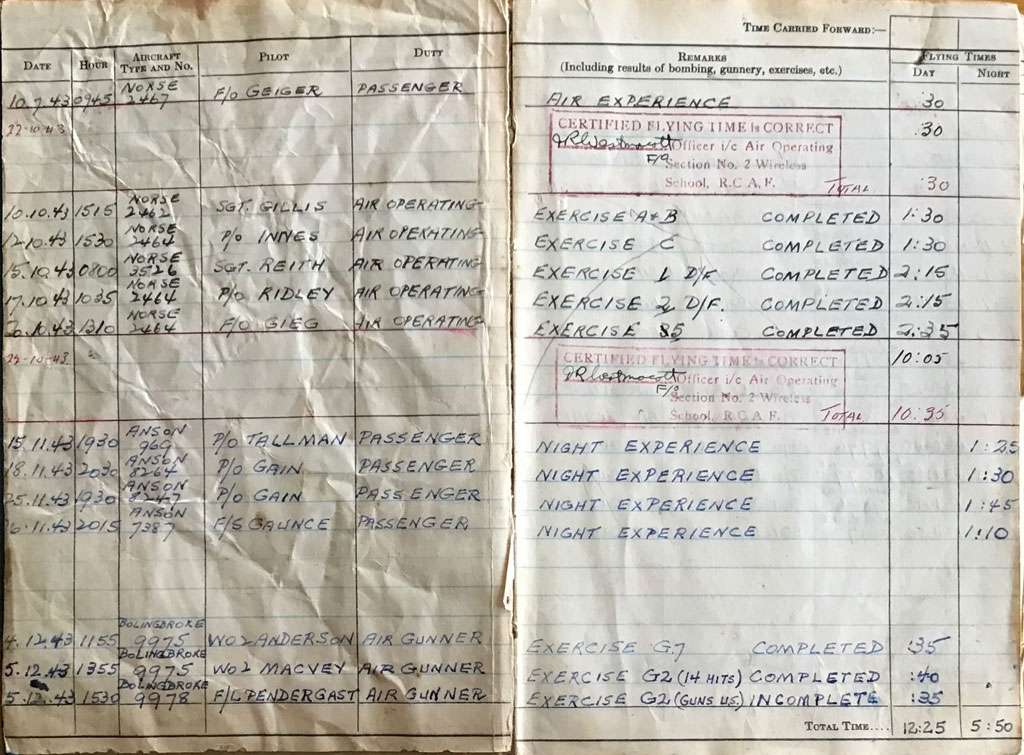 TIME CARRIED FORWARD:—
DATE HOUR AIRCRAFT TYPE AND NO. PILOT DUTY REMARKS (Including results of bombing, gunnery, exercises, etc.) FLYING TIMES DAY NIGHT
10.7.43 0945 NORSE 2467 F/O GEIGER PASSENGER AIR EXPERIENCE :30
CERTIFIED FLYING TIME is CORRECT
22-10-43 Officer i/c Air Operating :30
F/O Section No. 2 Wireless
School, R.C.A.F. TOTAL :30
10.10.43 1515 NORSE 2462 SGT. GILLIS AIR OPERATING EXERCISE A & B COMPLETED 1:30
12.10.43 1530 NORSE 2464 P/O INNES AIR OPERATING EXERCISE C COMPLETED 1:30
15.10.43 0800 NORSE 3526 SGT. REITH AIR OPERATING EXERCISE 1 D/F COMPLETED 2:15
17.10.43 1035 NORSE 2464 P/O RIDLEY AIR OPERATING EXERCISE 2 D/F. COMPLETED 2:15
6.10.43 1310 NORSE 2464 F/O GIEG AIR OPERATING EXERCISE 5 COMPLETED 2:35
CERTIFIED FLYING TIME is CORRECT 10:05
Officer i/c Air Operating
F/O Section No. 2 Wireless
School, R.C.A.F. TOTAL 10:35
15.11.43 1930 ANSON P/O TALLMAN PASSENGER NIGHT EXPERIENCE 1:25
18.11.43 2030 ANSON 8264 P/O GAIN PASSENGER NIGHT EXPERIENCE 1:30
25.11.43 1930 ANSON 8247 P/O GAIN PASSENGER NIGHT EXPERIENCE 1:45
6.11.43 2015 ANSON 7387 F/S GAUNCE PASSENGER NIGHT EXPERIENCE 1:10
4.12.43 1155 BOLINGBROKE 9975 WO2 ANDERSON AIR GUNNER EXERCISE G7 COMPLETED :35
5.12.43 1355 BOLINGBROKE 9975 WO2 MACVEY AIR GUNNER EXERCISE G2 (14 HITS) COMPLETED :40
5.12.43 1530 BOLINGBROKE 9978 F/L PENDERGAST AIR GUNNER EXERCISE G2 (GUNS U.S.) INCOMPLETE :35
TOTAL TIME.... 12:25 5:50